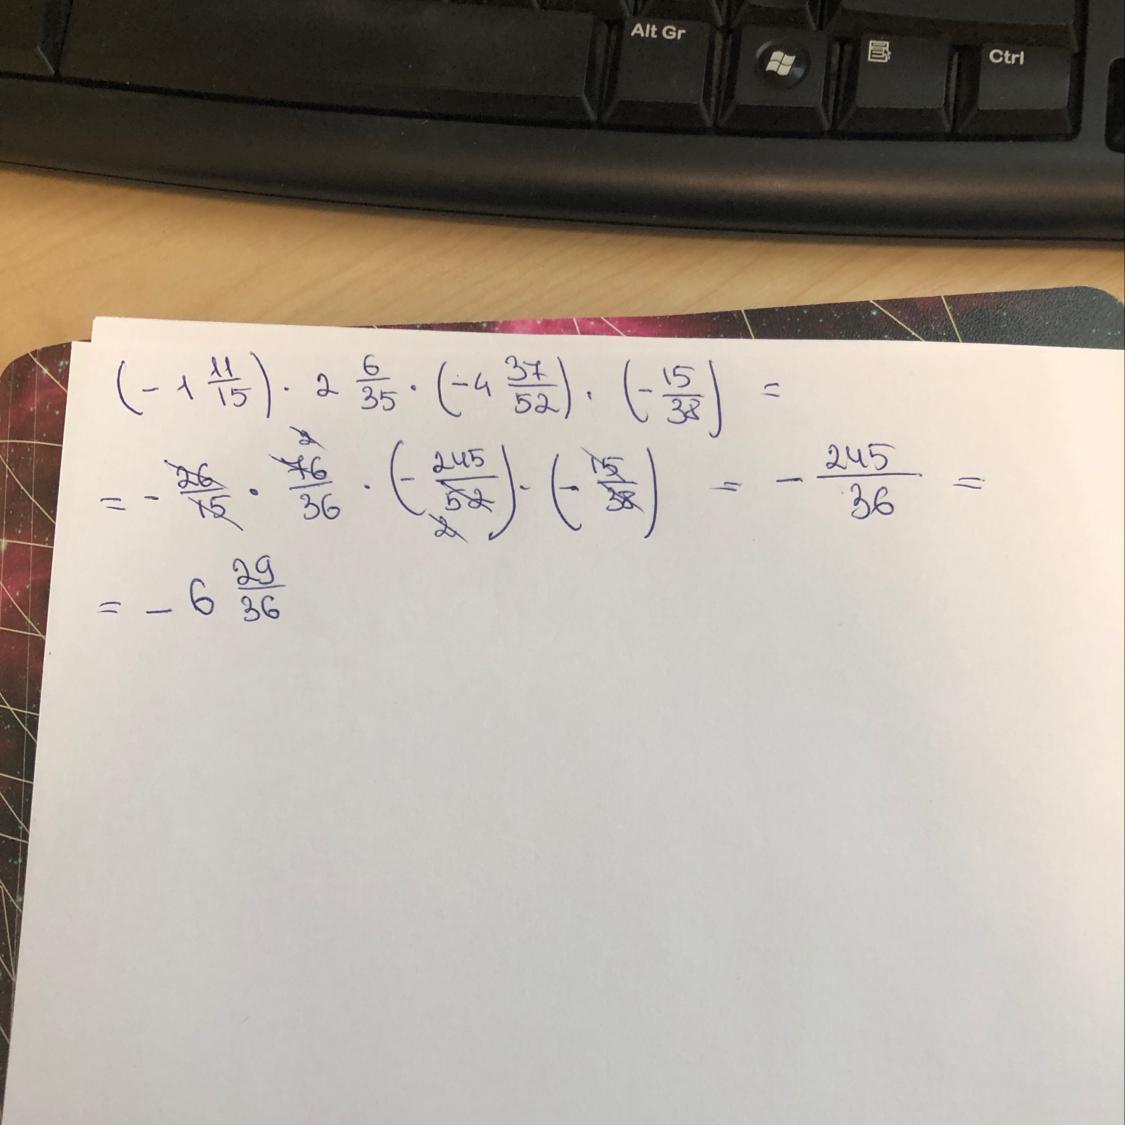 Alt Gr
Ctrl
(-1 11/15) · 2 6/35 · (-4 37/52) · (-15/38) =
= - 26/15 · 76/36 · (- 245/52) · (- 15/38) = - 245/36 =
2
2
= - 6 29/36